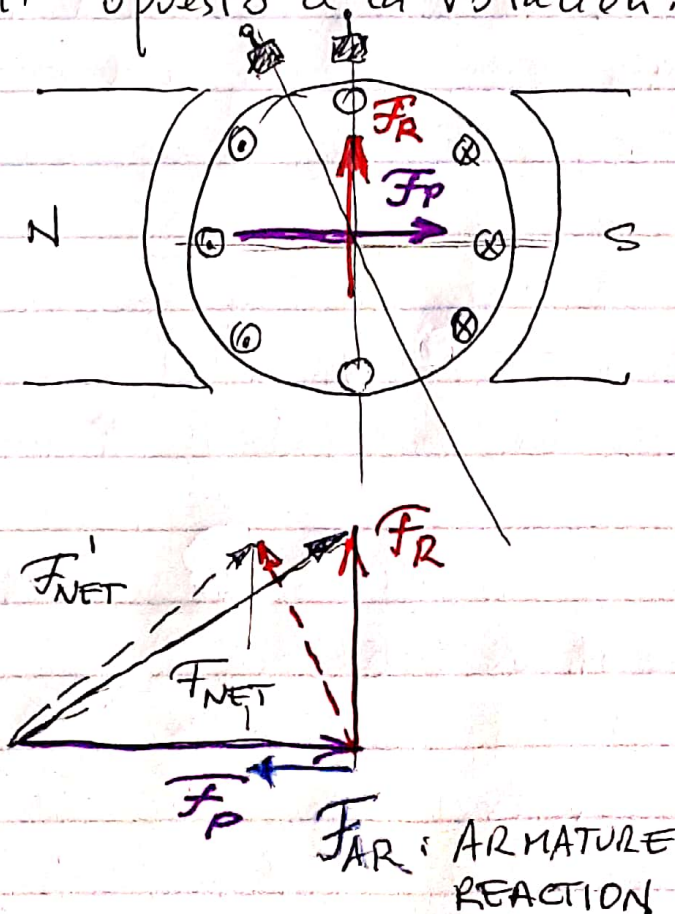 opuesto a la rotación.
F_R
F_P
N
S
F_R
F'_NET
F_NET
F_P
F_AR : ARMATURE
REACTION